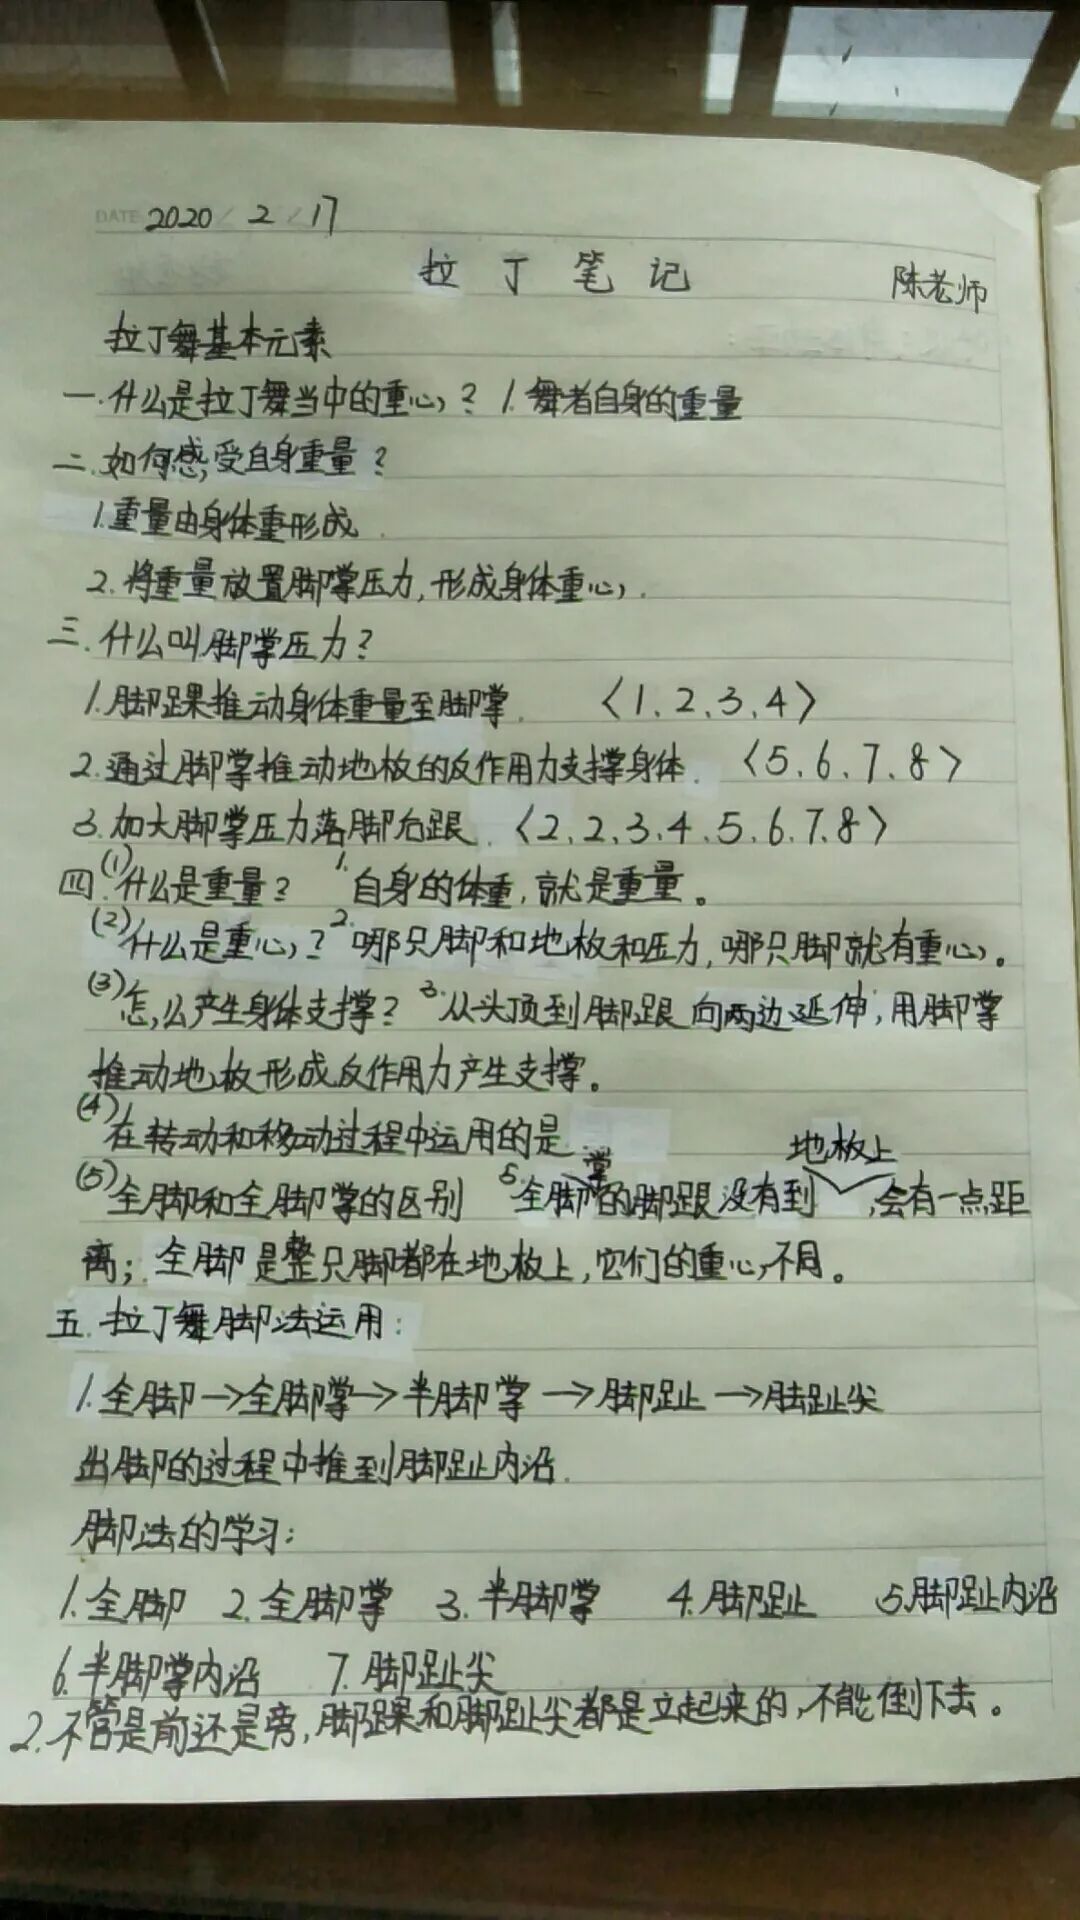 DATE 2020 / 2 / 17
拉丁笔记
陈老师
拉丁舞基本元素
一.什么是拉丁舞当中的重心? 1.舞者自身的重量
二.如何感受自身重量?
1.重量由身体重形成.
2.将重量放置脚掌压力,形成身体重心.
三.什么叫脚掌压力?
1.脚踝推动身体重量至脚掌. 〈1、2、3、4〉
2.通过脚掌推动地板的反作用力支撑身体. 〈5、6、7、8〉
3.加大脚掌压力落脚后跟. 〈2、2、3、4、5、6、7、8〉
四.(1)什么是重量? 1.自身的体重,就是重量。
(2)什么是重心? 2.哪只脚和地板和压力,哪只脚就有重心。
(3)怎么产生身体支撑? 3.从头顶到脚跟向两边延伸,用脚掌
推动地板形成反作用力产生支撑。
(4)在转动和移动过程中运用的是
(5)全脚和全脚掌的区别 5.全脚掌的脚跟没有到地板上,会有一点距
离;全脚是整只脚都在地板上,它们的重心不同。
五.拉丁舞脚法运用:
1.全脚→全脚掌→半脚掌→脚趾→脚趾尖
出脚的过程中推到脚趾内沿.
脚法的学习:
1.全脚 2.全脚掌 3.半脚掌 4.脚趾 5.脚趾内沿
6.半脚掌内沿 7.脚趾尖
2.不管是前还是旁,脚踝和脚趾尖都是立起来的,不能倒下去。